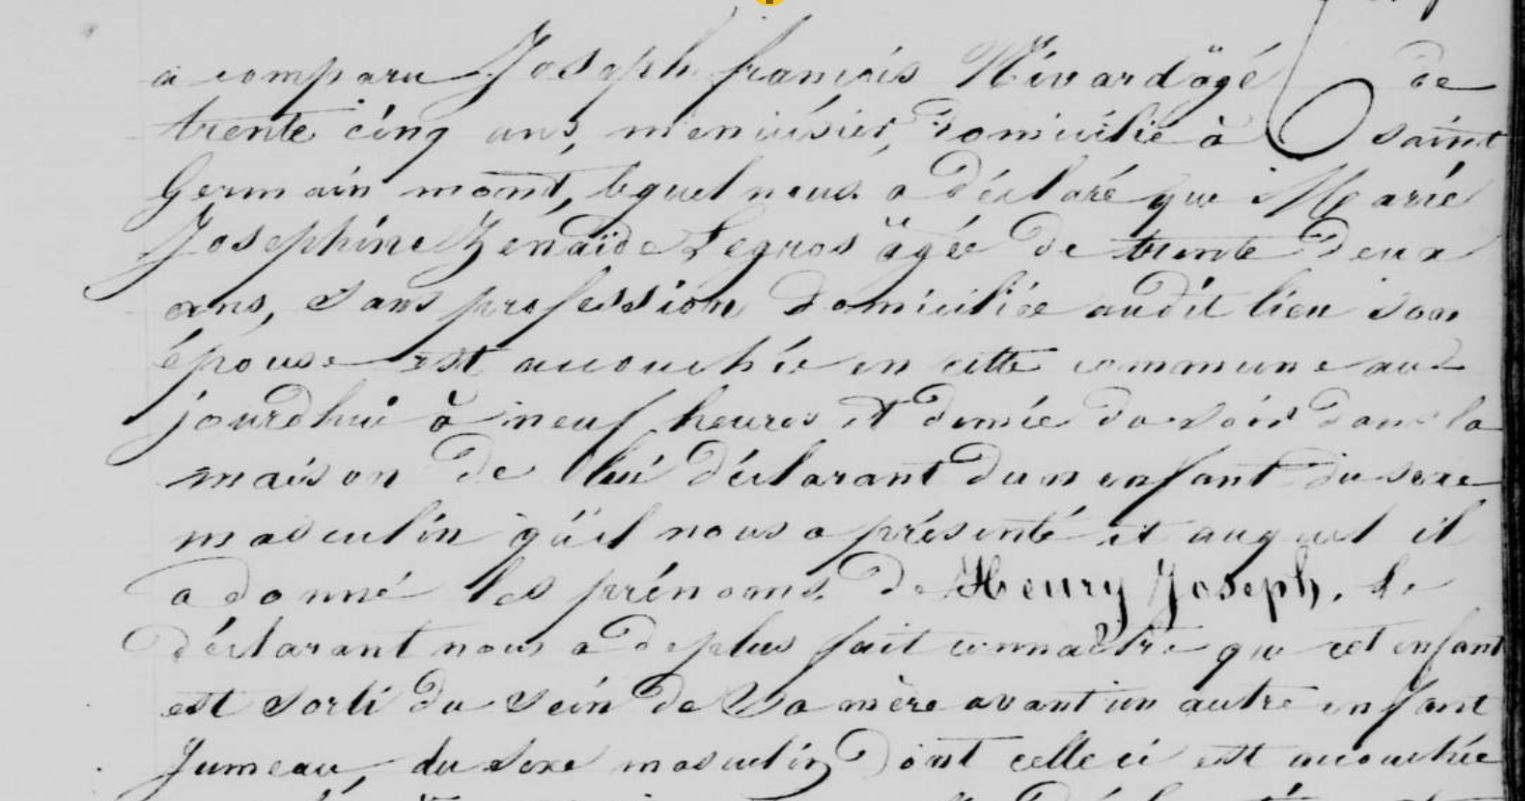 a comparu Joseph françois Nivard âgé de
trente cinq ans, menuisier, domicilié à saint
Germainmont, lequel nous a déclaré que Marie
Josephine Zénaïde Legros âgée de trente deux
ans, sans profession domiciliée audit lieu son
épouse est accouchée en cette commune au-
jourdhui à neuf heures et demie du soir dans la
maison de lui déclarant dun enfant du sexe
masculin qu'il nous a présenté et auquel il
a donné les prénoms de Henry Joseph. Le
déclarant nous a de plus fait connaître que cet enfant
est sorti du sein de sa mère avant un autre enfant
Jumeau, du sexe masculin dont celle ci est accouchée